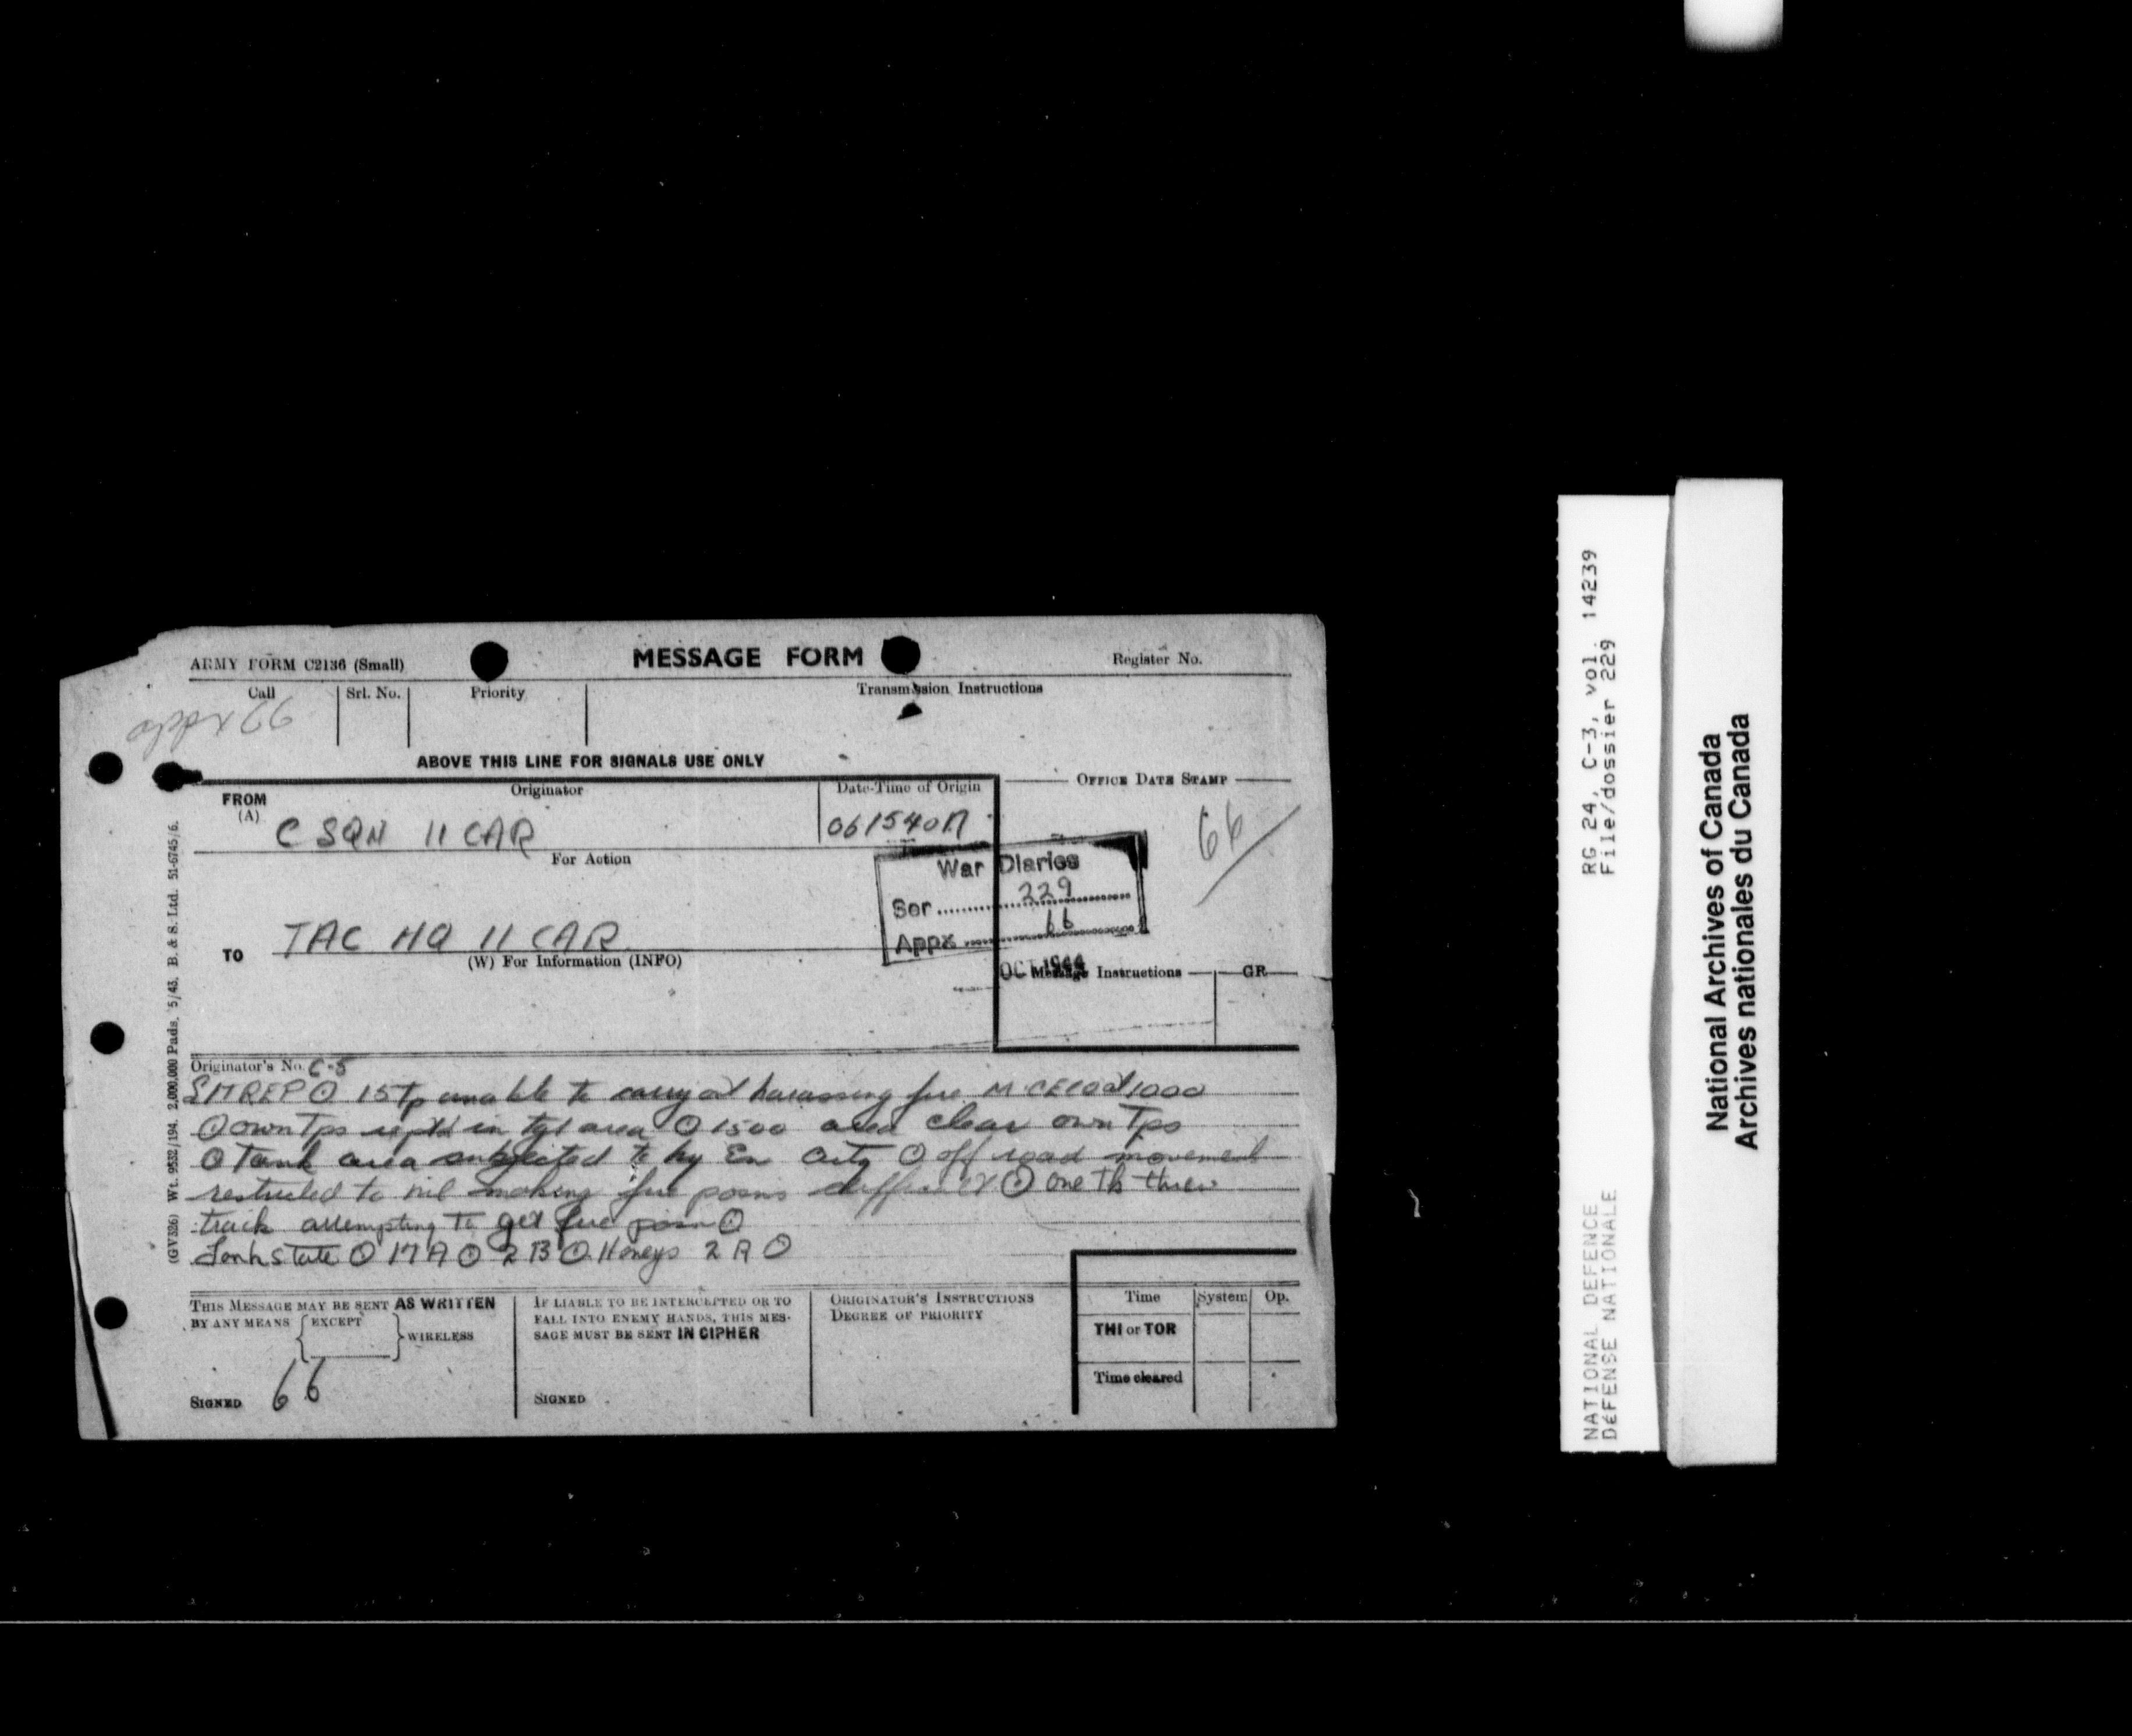 ARMY FORM C2136 (Small)
MESSAGE FORM
Register No.
Call
Srl. No.
Priority
Transmission Instructions
appx 66
ABOVE THIS LINE FOR SIGNALS USE ONLY
FROM
(A)
Originator
Date-Time of Origin
OFFICE DATE STAMP
C SQN 11 CAR
061540A
66
For Action
War Diaries
Ser 229
Appx 66
OCT 1944
TO
TAC HQ 11 CAR
(W) For Information (INFO)
Message Instructions
GR
Originator's No. C-5
SITREP O 15 Tp unable to carry out harassing fire at 1000
O own Tps in tgt area O 1500 area clear own Tps
O Tank area subjected to hy En arty O off road movement
restricted to nil making fire posns difficult O one tk threw
track attempting to get fire posn O
Tank state O 17 A O 2 B O Honeys 2 A O
THIS MESSAGE MAY BE SENT AS WRITTEN
BY ANY MEANS EXCEPT WIRELESS
SIGNED 66
IF LIABLE TO BE INTERCEPTED OR TO
FALL INTO ENEMY HANDS, THIS MES-
SAGE MUST BE SENT IN CIPHER
SIGNED
ORIGINATOR'S INSTRUCTIONS
DEGREE OF PRIORITY
Time
System
Op.
THI or TOR
Time cleared
(GV326) Wt. 9532/194. 2,000,000 Pads. 5/43. B. & S. Ltd. 51-6745/6.
NATIONAL DEFENCE
DÉFENSE NATIONALE
RG 24, C-3, vol. 14239
File/dossier 229
National Archives of Canada
Archives nationales du Canada